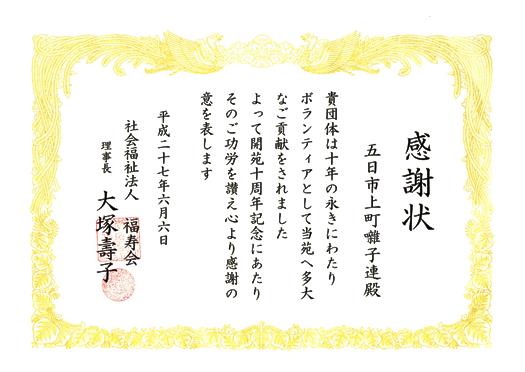 感謝状
五日市上町囃子連殿
貴団体は十年の永きにわたり
ボランティアとして当苑へ多大
なご貢献をされました
よって開苑十周年記念にあたり
そのご功労を讃え心より感謝の
意を表します
平成二十七年六月六日
社会福祉法人 福寿会
理事長 大塚壽子